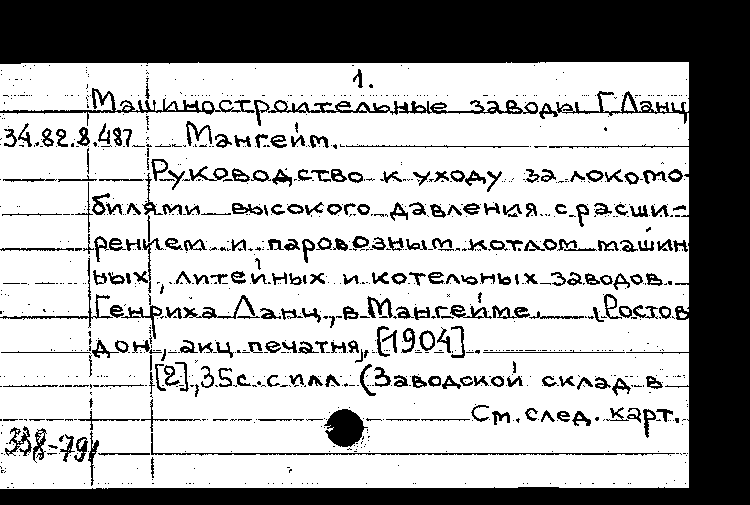 1.
Машиностроительные заводы Г. Ланц
34.82.8.487 Мангейм.
Руководство к уходу за локомо-
билями высокого давления с расши-
рением и паровозным котлом машин
ных, литейных и котельных заводов.
Генриха Ланц, в Мангейме. Ростов
дон, акц. печатня, [1904].
[2], 35с. с илл. (Заводской склад в
См. след. карт.
338-791